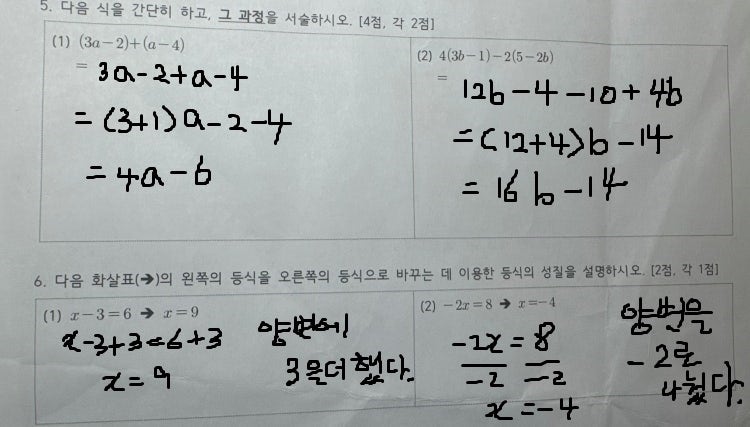 5. 다음 식을 간단히 하고, 그 과정을 서술하시오. [4점, 각 2점]
(1) (3a-2)+(a-4)
= 3a-2+a-4
= (3+1)a-2-4
= 4a-6
(2) 4(3b-1)-2(5-2b)
= 12b-4-10+4b
=(12+4)b-14
= 16b-14
6. 다음 화살표(➔)의 왼쪽의 등식을 오른쪽의 등식으로 바꾸는 데 이용한 등식의 성질을 설명하시오. [2점, 각 1점]
(1) x-3=6 ➔ x=9
x-3+3=6+3
x=9
양변에
3을더했다.
(2) -2x=8 ➔ x=-4
-2x = 8
-2 -2
x=-4
양변을
-2로
나눴다.